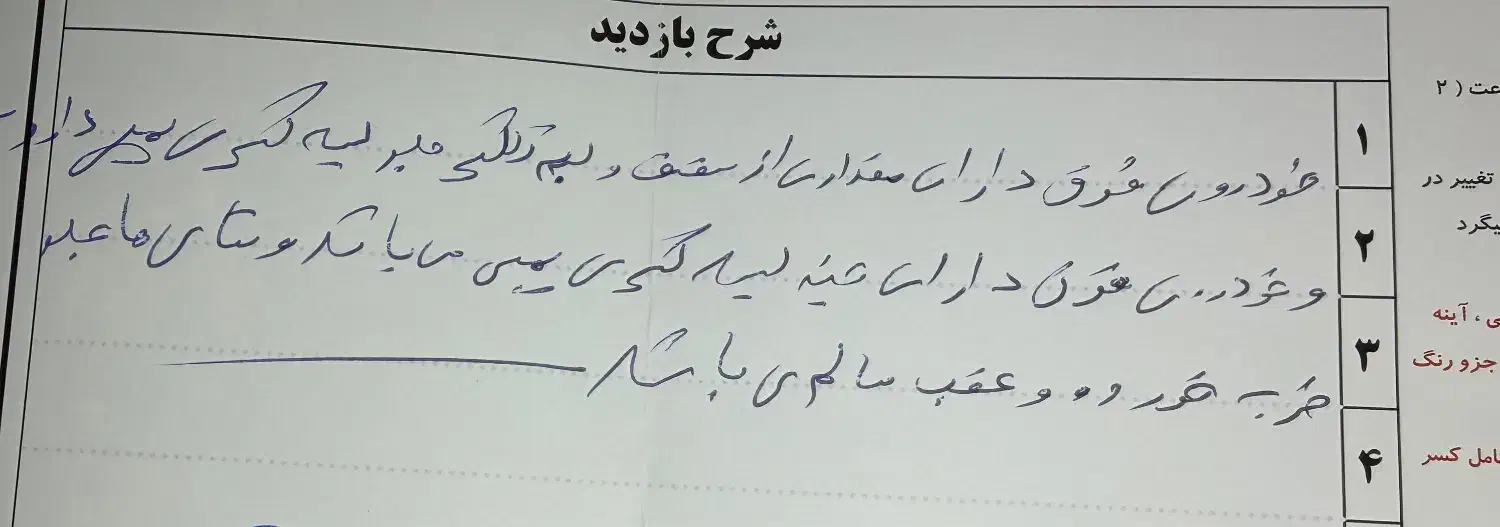 شرح بازدید
۱ خودروی فوق دارای مقداری از سقف و لیسه گیری دارد
۲ و خودروی فوق دارای لیسه گیری می باشد و ستای ها جلو
۳ ضرب خورده و عقب سالم می باشد
۴
عت ( ۲
تغییر در
یگرد
ی ، آینه
جزو رنگ
امل کسر